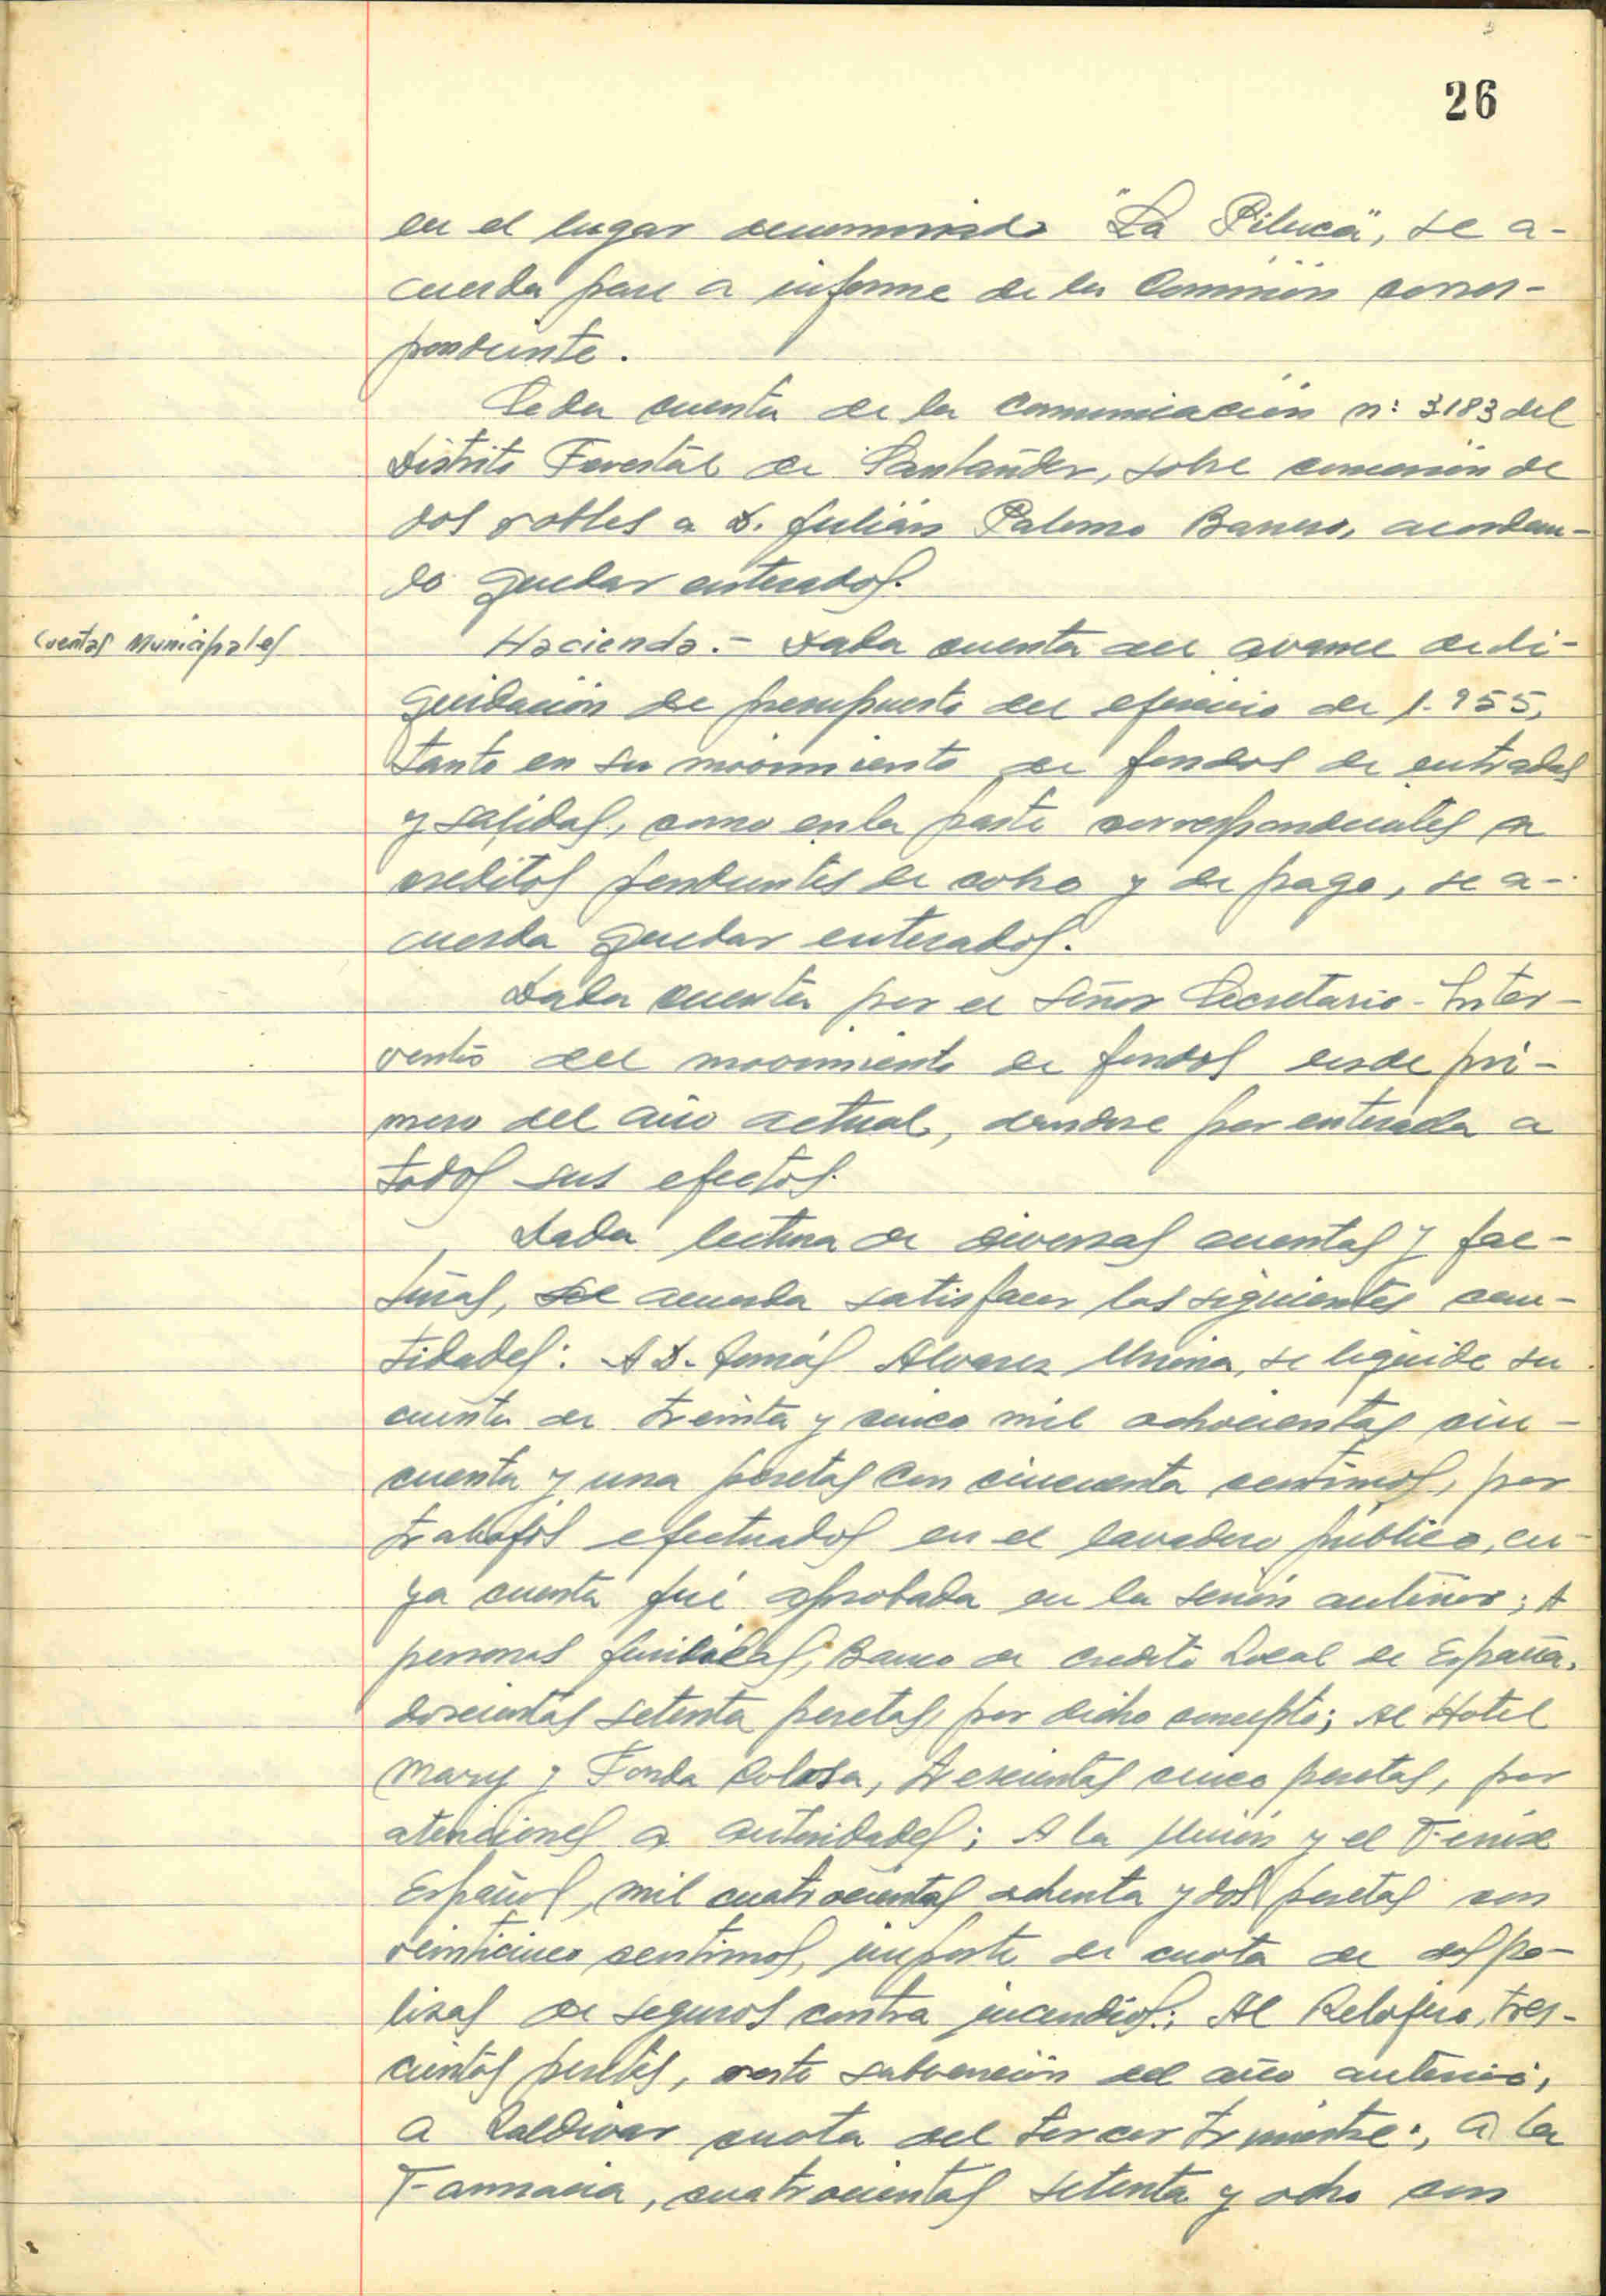 26
en el lugar denominado "La Piluca", se a-
cuerda pase a informe de la Comisión corres-
pondiente.
Se da cuenta de la comunicación nº 3183 del
Distrito Forestal de Santander, sobre concesión de
dos robles a D. Julián Palomo acordan-
do quedar enterados.
Cuentas Municipales
Hacienda.- Dada cuenta del avance de li-
quidación de presupuesto del ejercicio de 1.955,
tanto en su movimiento de fondos de entradas
y salidas, como en la parte correspondientes a
creditos pendientes de cobro y de pago, se a-
cuerda quedar enterados.
Dada cuenta por el Señor Secretario-Inter-
ventor del movimiento de fondos desde pri-
mero del año actual, dandose por enterada a
todos sus efectos.
Dada lectura de diversas cuentas y fac-
turas, se acuerda satisfacer las siguientes can-
tidades: A D. Tomás Alvarez se liquide su
cuenta de treinta y cinco mil ochocientas cin-
cuenta y una pesetas con cincuenta centimos, por
trabajos efectuados en el lavadero público, cu-
ya cuenta fué aprobada en la sesión anterior; A
personas jurídicas, Banco de Credito Local de España,
doscientas setenta pesetas, por dicho concepto; Al Hotel
Mary y Fonda Colosa, trescientas cinco pesetas, por
atenciones a autoridades; A la Unión y el Fenix
Español, mil cuatrocientas ochenta y dos pesetas con
veinticinco centimos, importe de cuota de dos po-
lizas de seguros contra incendios; Al Relojero, tres-
cientas pesetas, resto subvención del año anterior;
a Zaldivar cuota del tercer trimestre; a la
Farmacia, cuatrocientas setenta y ocho con